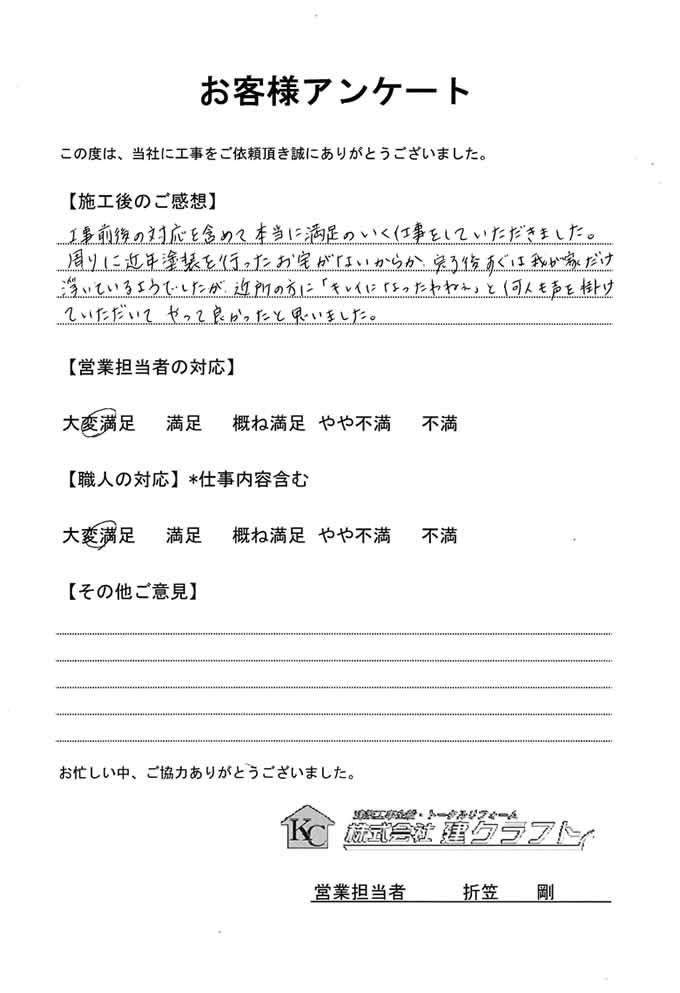 お客様アンケート
この度は、当社に工事をご依頼頂き誠にありがとうございました。
【施工後のご感想】
工事前後の対応を含めて本当に満足のいく仕事をしていただきました。
周りに近年塗装を行ったお宅がないからか、完了後すぐは我が家だけ
浮いているようでしたが、近所の方に「キレイになったわねぇ」と何人も声を掛け
ていただいて やって良かったと思いました。
【営業担当者の対応】
大変満足 満足 概ね満足 やや不満 不満
【職人の対応】*仕事内容含む
大変満足 満足 概ね満足 やや不満 不満
【その他ご意見】
お忙しい中、ご協力ありがとうございました。
KC
・トータルリフォーム
株式会社 建クラフト
営業担当者 折笠 剛